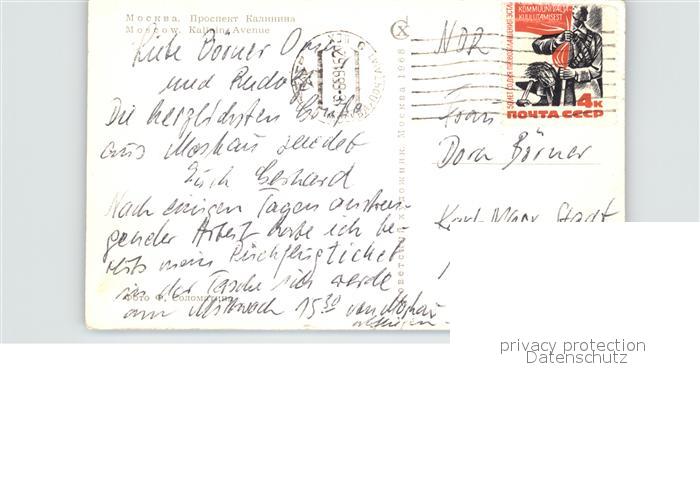 Москва. Проспект Калинина
Moscow. Kalinin Avenue
Liebe Börner Omi
und Rudolf
Die herzlichsten Grüße
aus Moskau sendet
Euch Gerhard
Nach einigen Tagen anstren-
gender Arbeit habe ich be-
reits mein Rückflugticket
in der Tasche und werde
am Mittwoch 15.30 von Moskau
abfliegen.
Фото Ф. Соломатина
Советский художник. Москва 1968
NDR
KOMMUNI VALSA
KUULUTAMISEST
4к
ПОЧТА СССР
Frau
Dora Börner
Karl-Marx-Stadt
privacy protection
Datenschutz